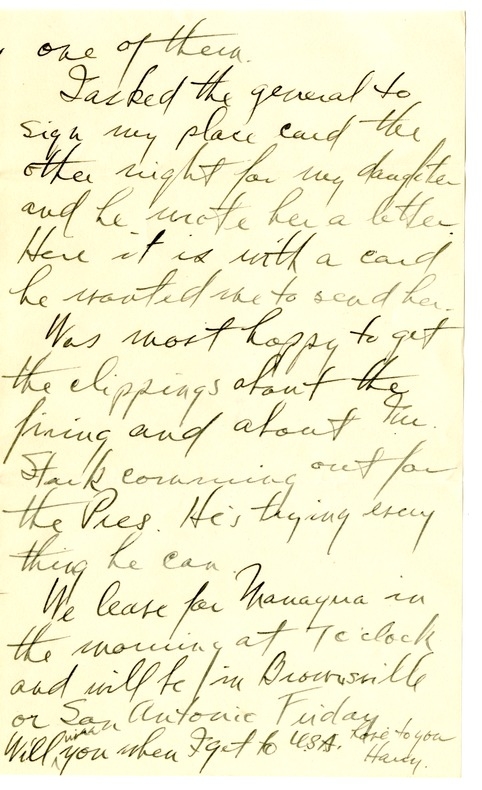 one of them.
I asked the general to
sign my place card the
other night for my daughter
and he wrote her a letter.
Here it is with a card
he wanted me to send her.
Was most happy to get
the clippings about the
firing and about Mr.
Stark comming out for
the Pres. He's trying every
thing he can.
We leave for Managua in
the morning at 7 o'clock
and will be in Brownsville
or San Antonio Friday
Will wire you when I get to U.S.A. Love to you
Harry.